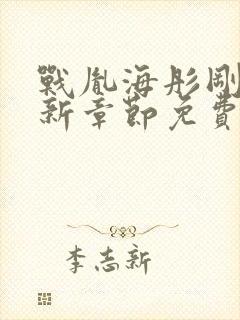 戰胤海彤剛
新章節免費
李志新